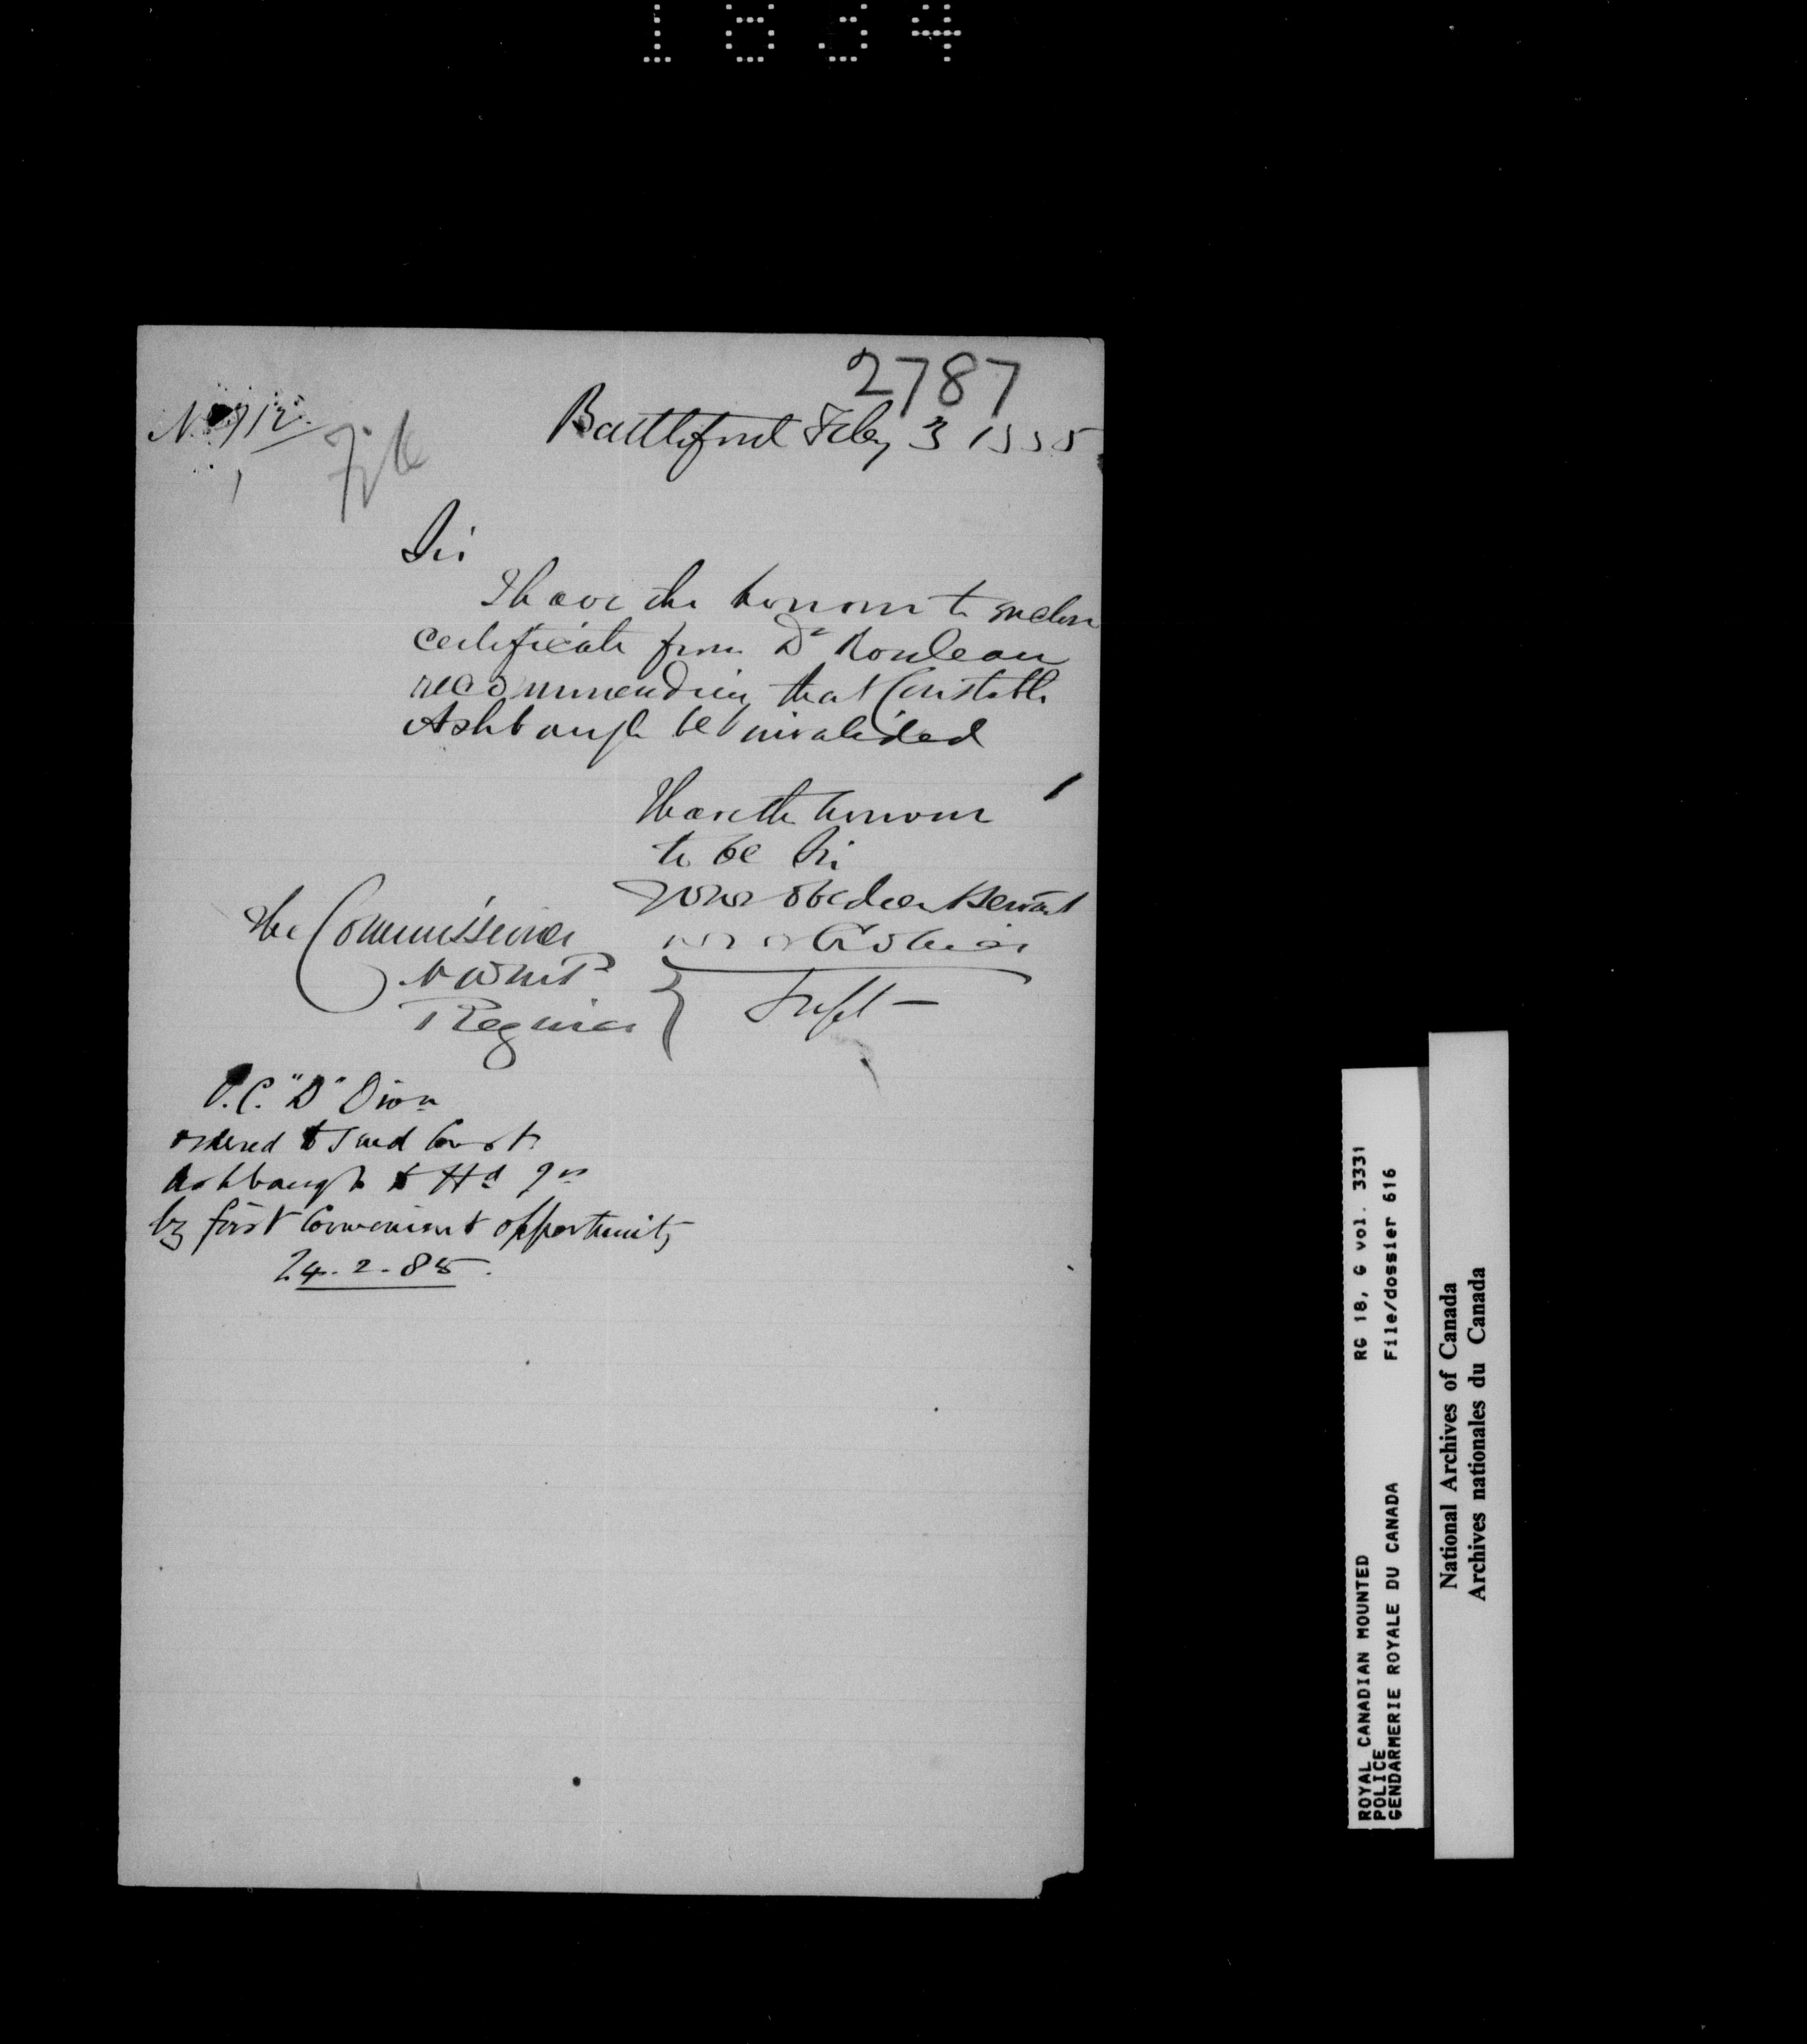 1834
2787
No 912
File
Battleford Feby 3 1885
Sir
I have the honour to enclose
certificate from Dr Rouleau
recommending that Constable
Ashbaugh be invalided
I have the honour
to be Sir
your obedient servant
Supt —
The Commissioner
N W M P
Regina
O.C. "D" Divn
ordered to send Const.
Ashbaugh to Hd Qrs
by first convenient opportunity
24.2.85.
ROYAL CANADIAN MOUNTED
POLICE
GENDARMERIE ROYALE DU CANADA
RG 18, G vol. 3331
File/dossier 616
National Archives of Canada
Archives nationales du Canada